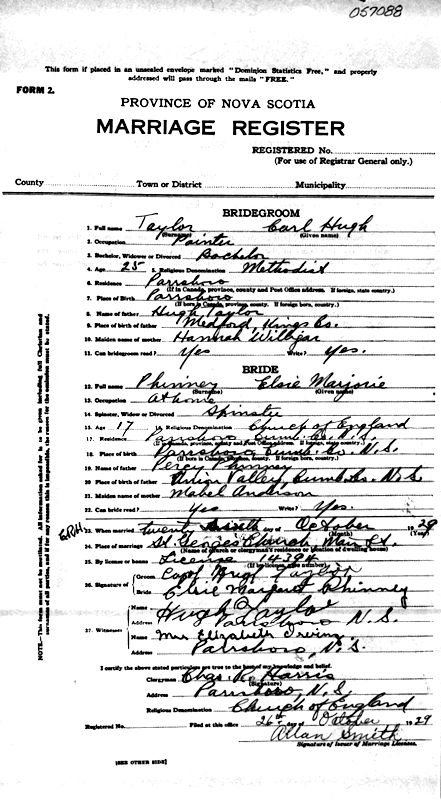 057088
This form if placed in an unsealed envelope marked "Dominion Statistics Free," and properly
addressed will pass through the mails "FREE."
FORM 2.
PROVINCE OF NOVA SCOTIA
MARRIAGE REGISTER
REGISTERED No.
(For use of Registrar General only.)
County Town or District Municipality
BRIDEGROOM
1. Full name Taylor Carl Hugh
(Surname) (Given name)
2. Occupation Painter
3. Bachelor, Widower or Divorced Bachelor
4. Age 25 5. Religious Denomination Methodist
6. Residence Parrsboro
(If in Canada, province, county and Post Office address. If foreign, state country.)
7. Place of Birth Parrsboro
(If born in Canada, province, county. If foreign born, country.)
8. Name of father Hugh Taylor
9. Place of birth of father Medford, Kings Co.
10. Maiden name of mother Hannah
11. Can bridegroom read? Yes Write? Yes.
BRIDE
12. Full name Phinney Elsie Marjorie
(Surname) (Given name)
13. Occupation at home
14. Spinster, Widow or Divorced Spinster
15. Age 17 16. Religious Denomination Church of England
17. Residence Parrsboro Cumb. Co. N.S.
(If in Canada, province, county and Post Office address. If foreign, state country.)
18. Place of birth Parrsboro Cumb. Co. N.S.
(If born in Canada, province, county. If foreign born, country.)
19. Name of father Percy Phinney
20. Place of birth of father Union Valley, Cumb. Co. N.S.
21. Maiden name of mother Mabel Anderson
22. Can bride read? Yes Write? Yes.
23. When married twenty sixth day of October 1929
(Month) (Year)
24. Place of marriage St. George's Church Main St.
(Name of church or clergyman's residence or location of dwelling house)
25. By license or banns License 14384
(If by license, give number)
26. Signature of Groom Carl Hugh Taylor
Bride Elsie Margaret Phinney
27. Witnesses Name Hugh Taylor
Address Parrsboro N.S.
Name Mrs Elizabeth Irving
Address Parrsboro, N.S.
I certify the above stated particulars are true to the best of my knowledge and belief.
Clergyman Chas. R. Harris
(Signature)
Address Parrsboro, N.S.
Religious Denomination Church of England
Registered No. Filed at this office 26th day of October 1929
Allan Smith
Signature of Issuer of Marriage Licenses.
[SEE OTHER SIDE]